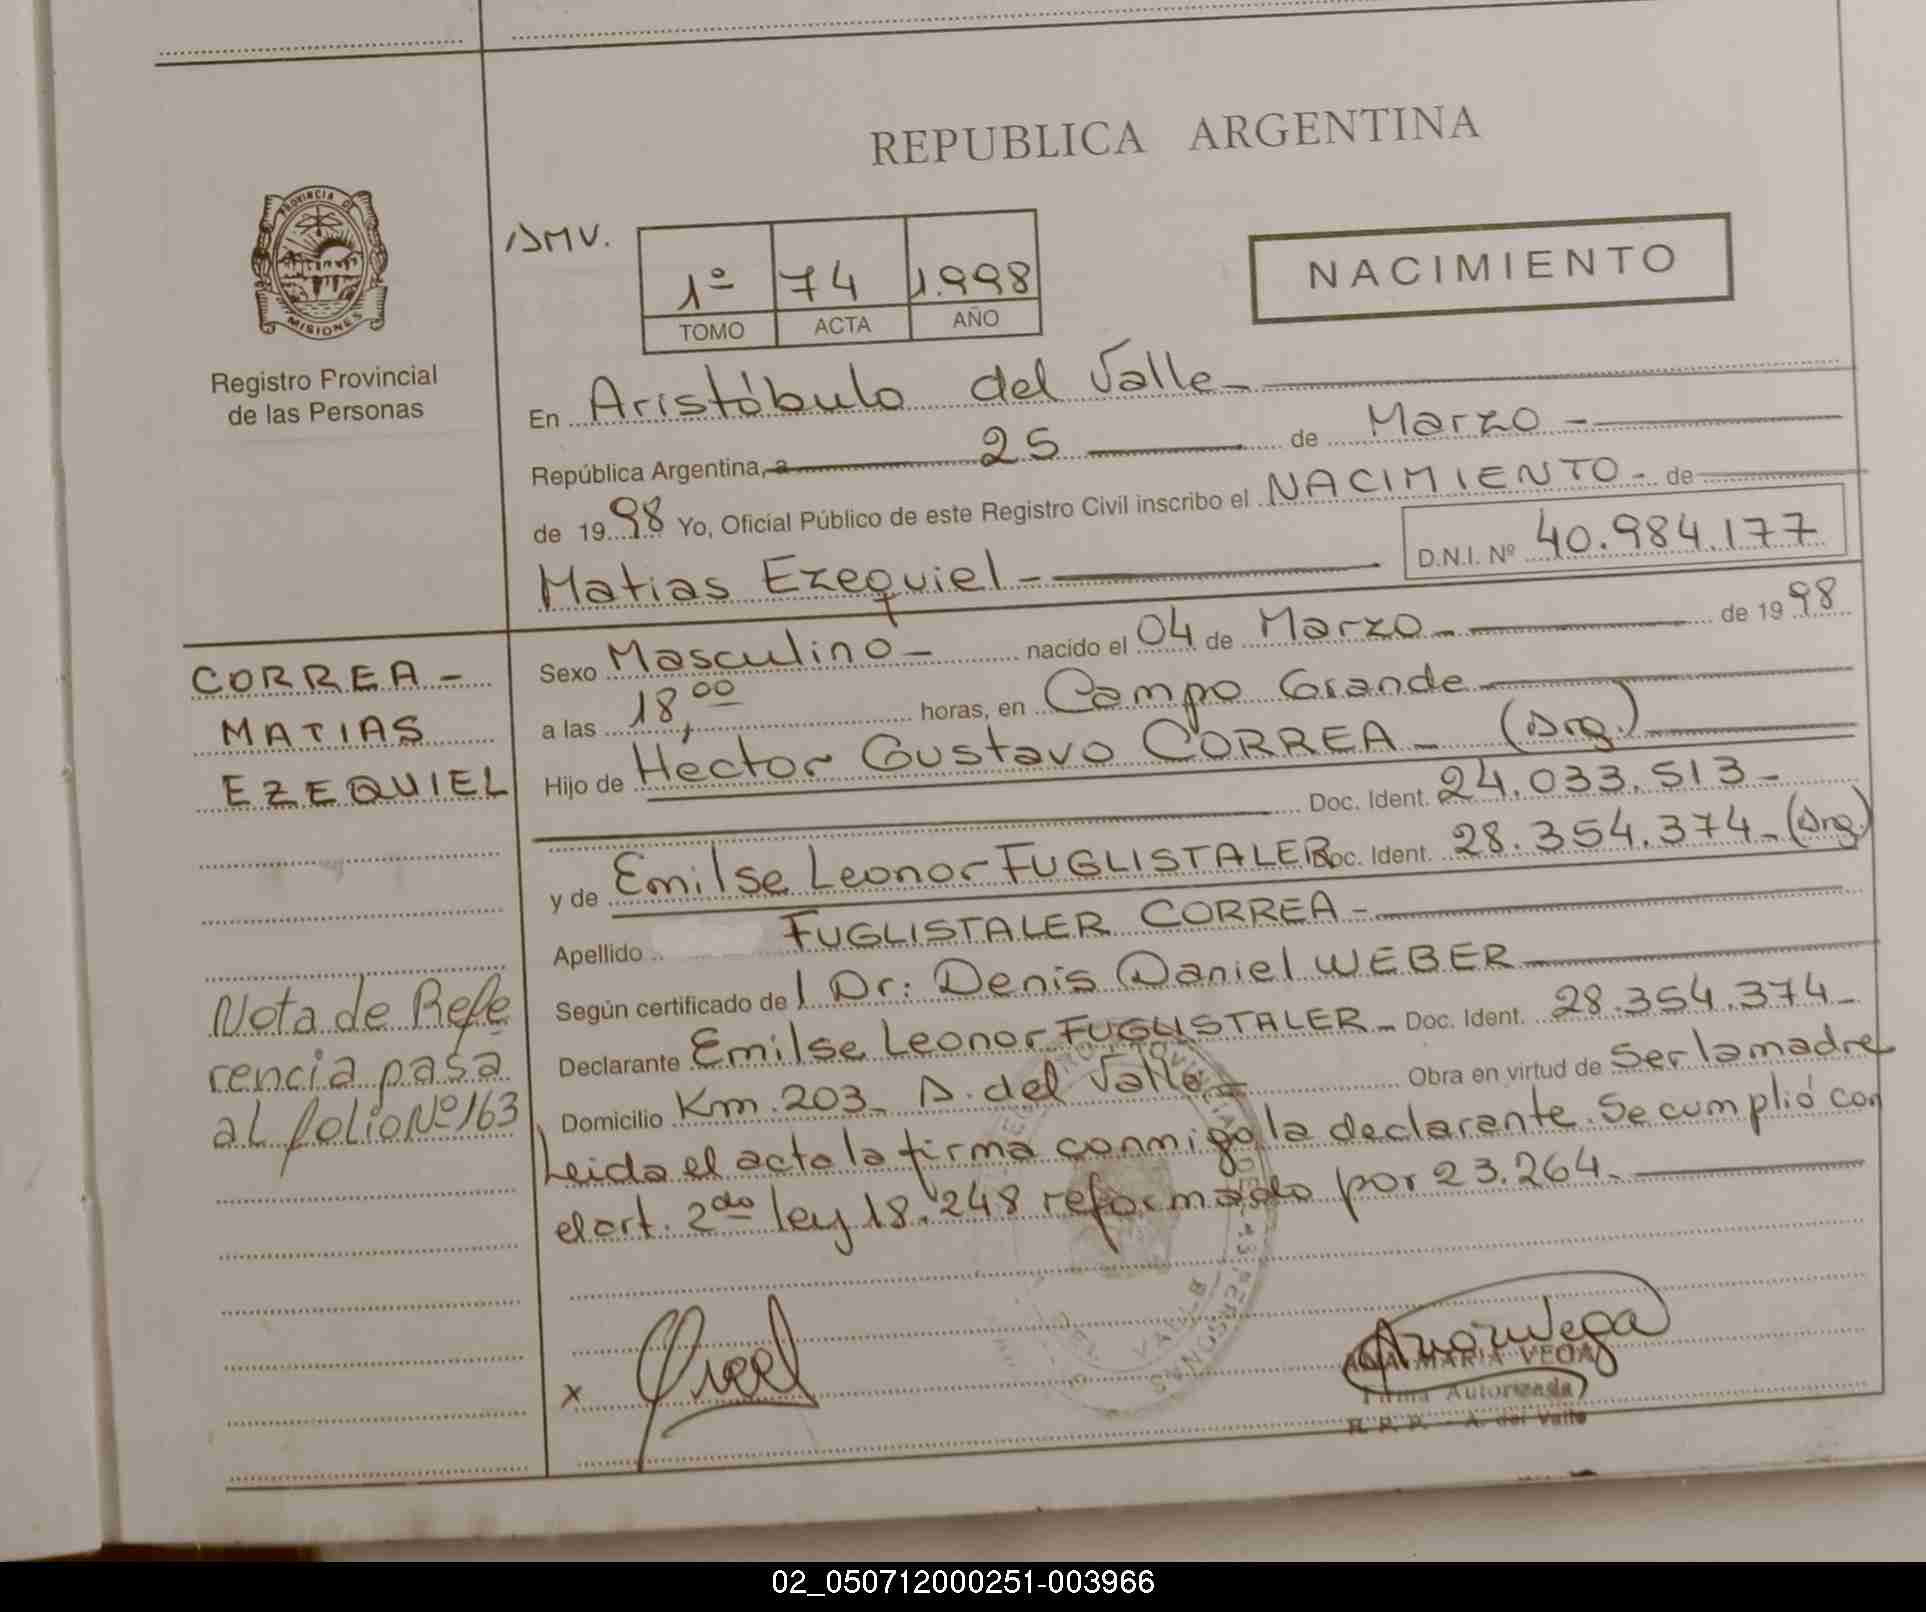 REPUBLICA ARGENTINA
PROVINCIA DE
MISIONES
Registro Provincial
de las Personas
AMV.
1º 74 1.998
TOMO ACTA AÑO
NACIMIENTO
En Aristóbulo del Valle-
República Argentina, a 25 de Marzo -
de 1998 Yo, Oficial Público de este Registro Civil inscribo el NACIMIENTO - de
Matias Ezequiel -
D.N.I. Nº 40.984.177
CORREA -
MATIAS
EZEQUIEL
Sexo Masculino - nacido el 04 de Marzo - de 1998
a las 18,00 horas, en Campo Grande -
Hijo de Héctor Gustavo CORREA - (Arg.)
Doc. Ident. 24.033.513 -
y de Emilse Leonor FUGLISTALER Doc. Ident. 28.354.374 - (Arg.)
Apellido FUGLISTALER CORREA -
Según certificado del Dr: Denis Daniel WEBER
Declarante Emilse Leonor FUGLISTALER - Doc. Ident. 28.354.374 -
Domicilio Km. 203 - A. del Valle - Obra en virtud de Ser la madre
Leida el acta la firma conmigo la declarante. Se cumplió con
el art. 2do ley 18.248 reformado por 23.264 -
Nota de Refe
rencia pasa
al folio Nº 163
x
ANA MARIA VEGA
Firma Autorizada
R. R. P. - A. del Valle
02_050712000251-003966